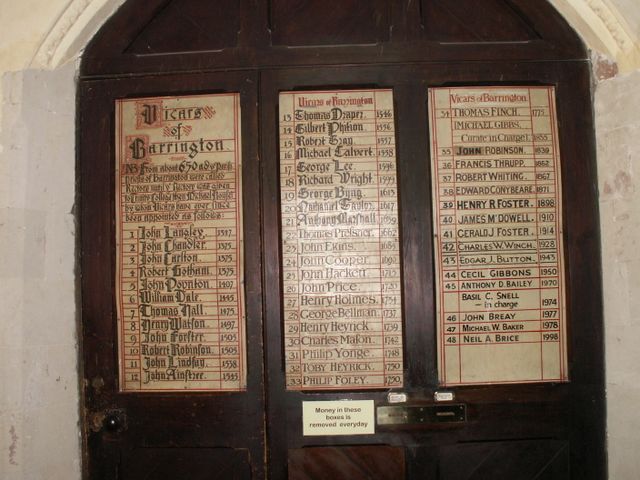 Vicars
of
Barrington
NB From about 650 ady Parish
Priests of Barrington were called
Rectors until
by whom Vicars have ever since
been appointed as follows:
1 John Langley, 1347
2 John Chandler, 1375
3 John Carlton, 1375
4 Robert Gotham, 1375
5 John Poynton, 1407
6 William Dale, 1445
7 Thomas Hall, 1475
8 Henry Watson, 1497
9 John Forster, 1505
10 Robert Robinson, 1505
11 John Lindsay, 1538
12 John Ainstree, 1545
Vicars of Barrington
13 Thomas Draper, 1546
14 Gilbert
15 Robert Gray, 1557
16 Michael Calvert, 1558
17 George Lee,
18 Richard Wright,
19 George Byng, 1613
20 Nathaniel Taylor,
21 Anthony Marshall,
22 Thomas
23 John Ekins,
24 John Cooper,
25 John Hackett,
26 John Price,
27 Henry Holmes,
28 George Bellman,
29 Henry Heyrick, 1739
30 Charles Mason, 1742
31 Philip Yonge, 1748
32 TOBY HEYRICK, 1750
33 PHILIP FOLEY, 1750
Vicars of Barrington
34 THOMAS FINCH, 1775
[MICHAEL GIBBS,
Curate in Charge] 1833
35 JOHN ROBINSON, 1839
36 FRANCIS THRUPP, 1862
37 ROBERT WHITING, 1867
38 EDWARD CONYBEARE, 1871
39 HENRY R FOSTER, 1898
40 JAMES McDOWELL, 1910
41 GERALD J FOSTER, 1914
42 CHARLES W. WINCH, 1928
43 EDGAR J. BUTTON, 1943
44 CECIL GIBBONS 1950
45 ANTHONY D. BAILEY 1970
BASIL C. SNELL
- in charge 1974
46 JOHN BREAY 1977
47 MICHAEL W. BAKER 1978
48 NEIL A. BRICE 1998
Money in these
boxes is
removed everyday